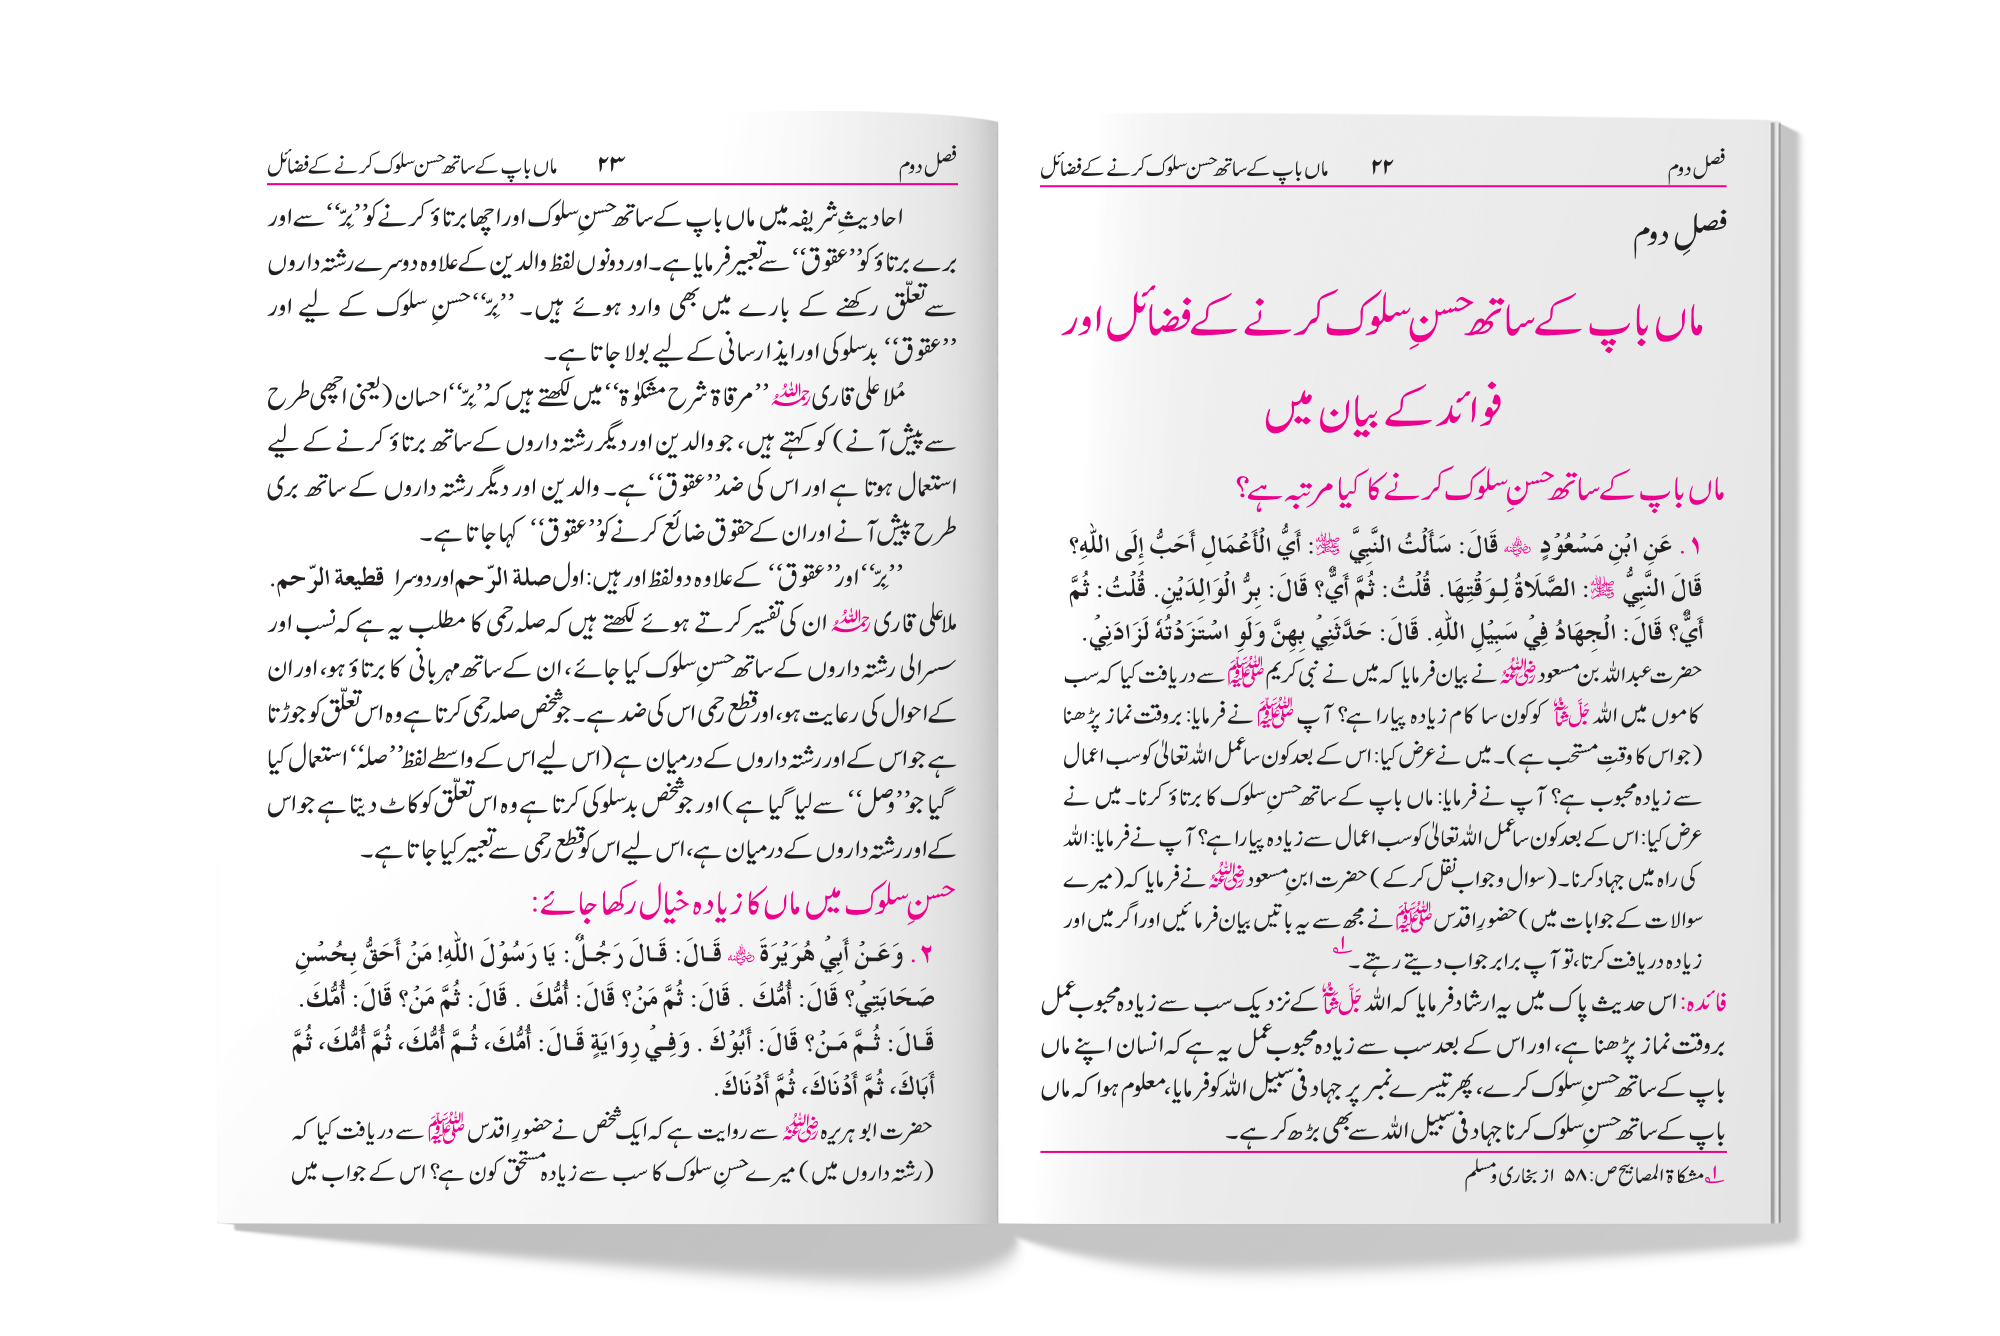 فصل دوم ۲۲ ماں باپ کے ساتھ حسن سلوک کرنے کے فضائل
فصلِ دوم
ماں باپ کے ساتھ حسنِ سلوک کرنے کے فضائل اور
فوائد کے بیان میں
ماں باپ کے ساتھ حسنِ سلوک کرنے کا کیا مرتبہ ہے؟
۱. عَنِ ابْنِ مَسْعُوْدٍ رضي الله عنه قَالَ: سَأَلْتُ النَّبِيَّ ﷺ: أَيُّ الْأَعْمَالِ أَحَبُّ إِلَى اللهِ؟
قَالَ النَّبِيُّ ﷺ: الصَّلَاةُ لِوَقْتِهَا. قُلْتُ: ثُمَّ أَيٌّ؟ قَالَ: بِرُّ الْوَالِدَيْنِ. قُلْتُ: ثُمَّ
أَيٌّ؟ قَالَ: الْجِهَادُ فِيْ سَبِيْلِ اللهِ. قَالَ: حَدَّثَنِيْ بِهِنَّ وَلَوِ اسْتَزَدْتُهٗ لَزَادَنِيْ.
حضرت عبداللہ بن مسعود رضی اللہ عنہ نے بیان فرمایا کہ میں نے نبی کریم ﷺ سے دریافت کیا کہ سب
کاموں میں اللہ جَلَّ شَانُہٗ کو کون سا کام زیادہ پیارا ہے؟ آپ ﷺ نے فرمایا: بروقت نماز پڑھنا
(جو اس کا وقتِ مستحب ہے)۔ میں نے عرض کیا: اس کے بعد کون سا عمل اللہ تعالیٰ کو سب اعمال
سے زیادہ محبوب ہے؟ آپ نے فرمایا: ماں باپ کے ساتھ حسنِ سلوک کا برتاؤ کرنا۔ میں نے
عرض کیا: اس کے بعد کون سا عمل اللہ تعالیٰ کو سب اعمال سے زیادہ پیارا ہے؟ آپ نے فرمایا: اللہ
کی راہ میں جہاد کرنا۔ (سوال و جواب نقل کرکے) حضرت ابنِ مسعود رضی اللہ عنہ نے فرمایا کہ (میرے
سوالات کے جوابات میں) حضورِ اقدس ﷺ نے مجھ سے یہ باتیں بیان فرمائیں اور اگر میں اور
زیادہ دریافت کرتا، تو آپ برابر جواب دیتے رہتے۔ ۱؎
فائدہ: اس حدیث پاک میں یہ ارشاد فرمایا کہ اللہ جَلَّ شَانُہٗ کے نزدیک سب سے زیادہ محبوب عمل
بروقت نماز پڑھنا ہے، اور اس کے بعد سب سے زیادہ محبوب عمل یہ ہے کہ انسان اپنے ماں
باپ کے ساتھ حسنِ سلوک کرے، پھر تیسرے نمبر پر جہاد فی سبیل اللہ کو فرمایا، معلوم ہوا کہ ماں
باپ کے ساتھ حسنِ سلوک کرنا جہاد فی سبیل اللہ سے بھی بڑھ کر ہے۔
۱؎ مشکاۃ المصابیح ص: ۵۸ از بخاری و مسلم
فصل دوم ۲۳ ماں باپ کے ساتھ حسن سلوک کرنے کے فضائل
احادیثِ شریفہ میں ماں باپ کے ساتھ حسنِ سلوک اور اچھا برتاؤ کرنے کو ’’بِرّ‘‘ سے اور
برے برتاؤ کو ’’عقوق‘‘ سے تعبیر فرمایا ہے۔ اور دونوں لفظ والدین کے علاوہ دوسرے رشتہ داروں
سے تعلّق رکھنے کے بارے میں بھی وارد ہوئے ہیں۔ ’’بِرّ‘‘ حسنِ سلوک کے لیے اور
’’عقوق‘‘ بدسلوکی اور ایذا رسانی کے لیے بولا جاتا ہے۔
مُلا علی قاری رحمہ اللہ ’’مرقاۃ شرح مشکوٰۃ‘‘ میں لکھتے ہیں کہ ’’بِرّ‘‘ احسان (یعنی اچھی طرح
سے پیش آنے) کو کہتے ہیں، جو والدین اور دیگر رشتہ داروں کے ساتھ برتاؤ کرنے کے لیے
استعمال ہوتا ہے اور اس کی ضد ’’عقوق‘‘ ہے۔ والدین اور دیگر رشتہ داروں کے ساتھ بری
طرح پیش آنے اور ان کے حقوق ضائع کرنے کو ’’عقوق‘‘ کہا جاتا ہے۔
’’بِرّ‘‘ اور ’’عقوق‘‘ کے علاوہ دو لفظ اور ہیں: اول صلة الرّحم اور دوسرا قطيعة الرّحم.
ملا علی قاری رحمہ اللہ ان کی تفسیر کرتے ہوئے لکھتے ہیں کہ صلہ رحمی کا مطلب یہ ہے کہ نسب اور
سسرالی رشتہ داروں کے ساتھ حسنِ سلوک کیا جائے، ان کے ساتھ مہربانی کا برتاؤ ہو، اور ان
کے احوال کی رعایت ہو، اور قطع رحمی اس کی ضد ہے۔ جو شخص صلہ رحمی کرتا ہے وہ اس تعلّق کو جوڑتا
ہے جو اس کے اور رشتہ داروں کے درمیان ہے (اس لیے اس کے واسطے لفظ ’’صلہ‘‘ استعمال کیا
گیا جو ’’وصل‘‘ سے لیا گیا ہے) اور جو شخص بدسلوکی کرتا ہے وہ اس تعلّق کو کاٹ دیتا ہے جو اس
کے اور رشتہ داروں کے درمیان ہے، اس لیے اس کو قطع رحمی سے تعبیر کیا جاتا ہے۔
حسنِ سلوک میں ماں کا زیادہ خیال رکھا جائے:
۲. وَعَنْ أَبِيْ هُرَيْرَةَ رضي الله عنه قَالَ: قَالَ رَجُلٌ: يَا رَسُوْلَ اللهِ! مَنْ أَحَقُّ بِحُسْنِ
صَحَابَتِيْ؟ قَالَ: أُمُّكَ . قَالَ: ثُمَّ مَنْ؟ قَالَ: أُمُّكَ . قَالَ: ثُمَّ مَنْ؟ قَالَ: أُمُّكَ.
قَالَ: ثُمَّ مَنْ؟ قَالَ: أَبُوْكَ . وَفِيْ رِوَايَةٍ قَالَ: أُمُّكَ، ثُمَّ أُمُّكَ، ثُمَّ أُمُّكَ، ثُمَّ
أَبَاكَ، ثُمَّ أَدْنَاكَ، ثُمَّ أَدْنَاكَ.
حضرت ابو ہریرہ رضی اللہ عنہ سے روایت ہے کہ ایک شخص نے حضورِ اقدس ﷺ سے دریافت کیا کہ
(رشتہ داروں میں) میرے حسنِ سلوک کا سب سے زیادہ مستحق کون ہے؟ اس کے جواب میں